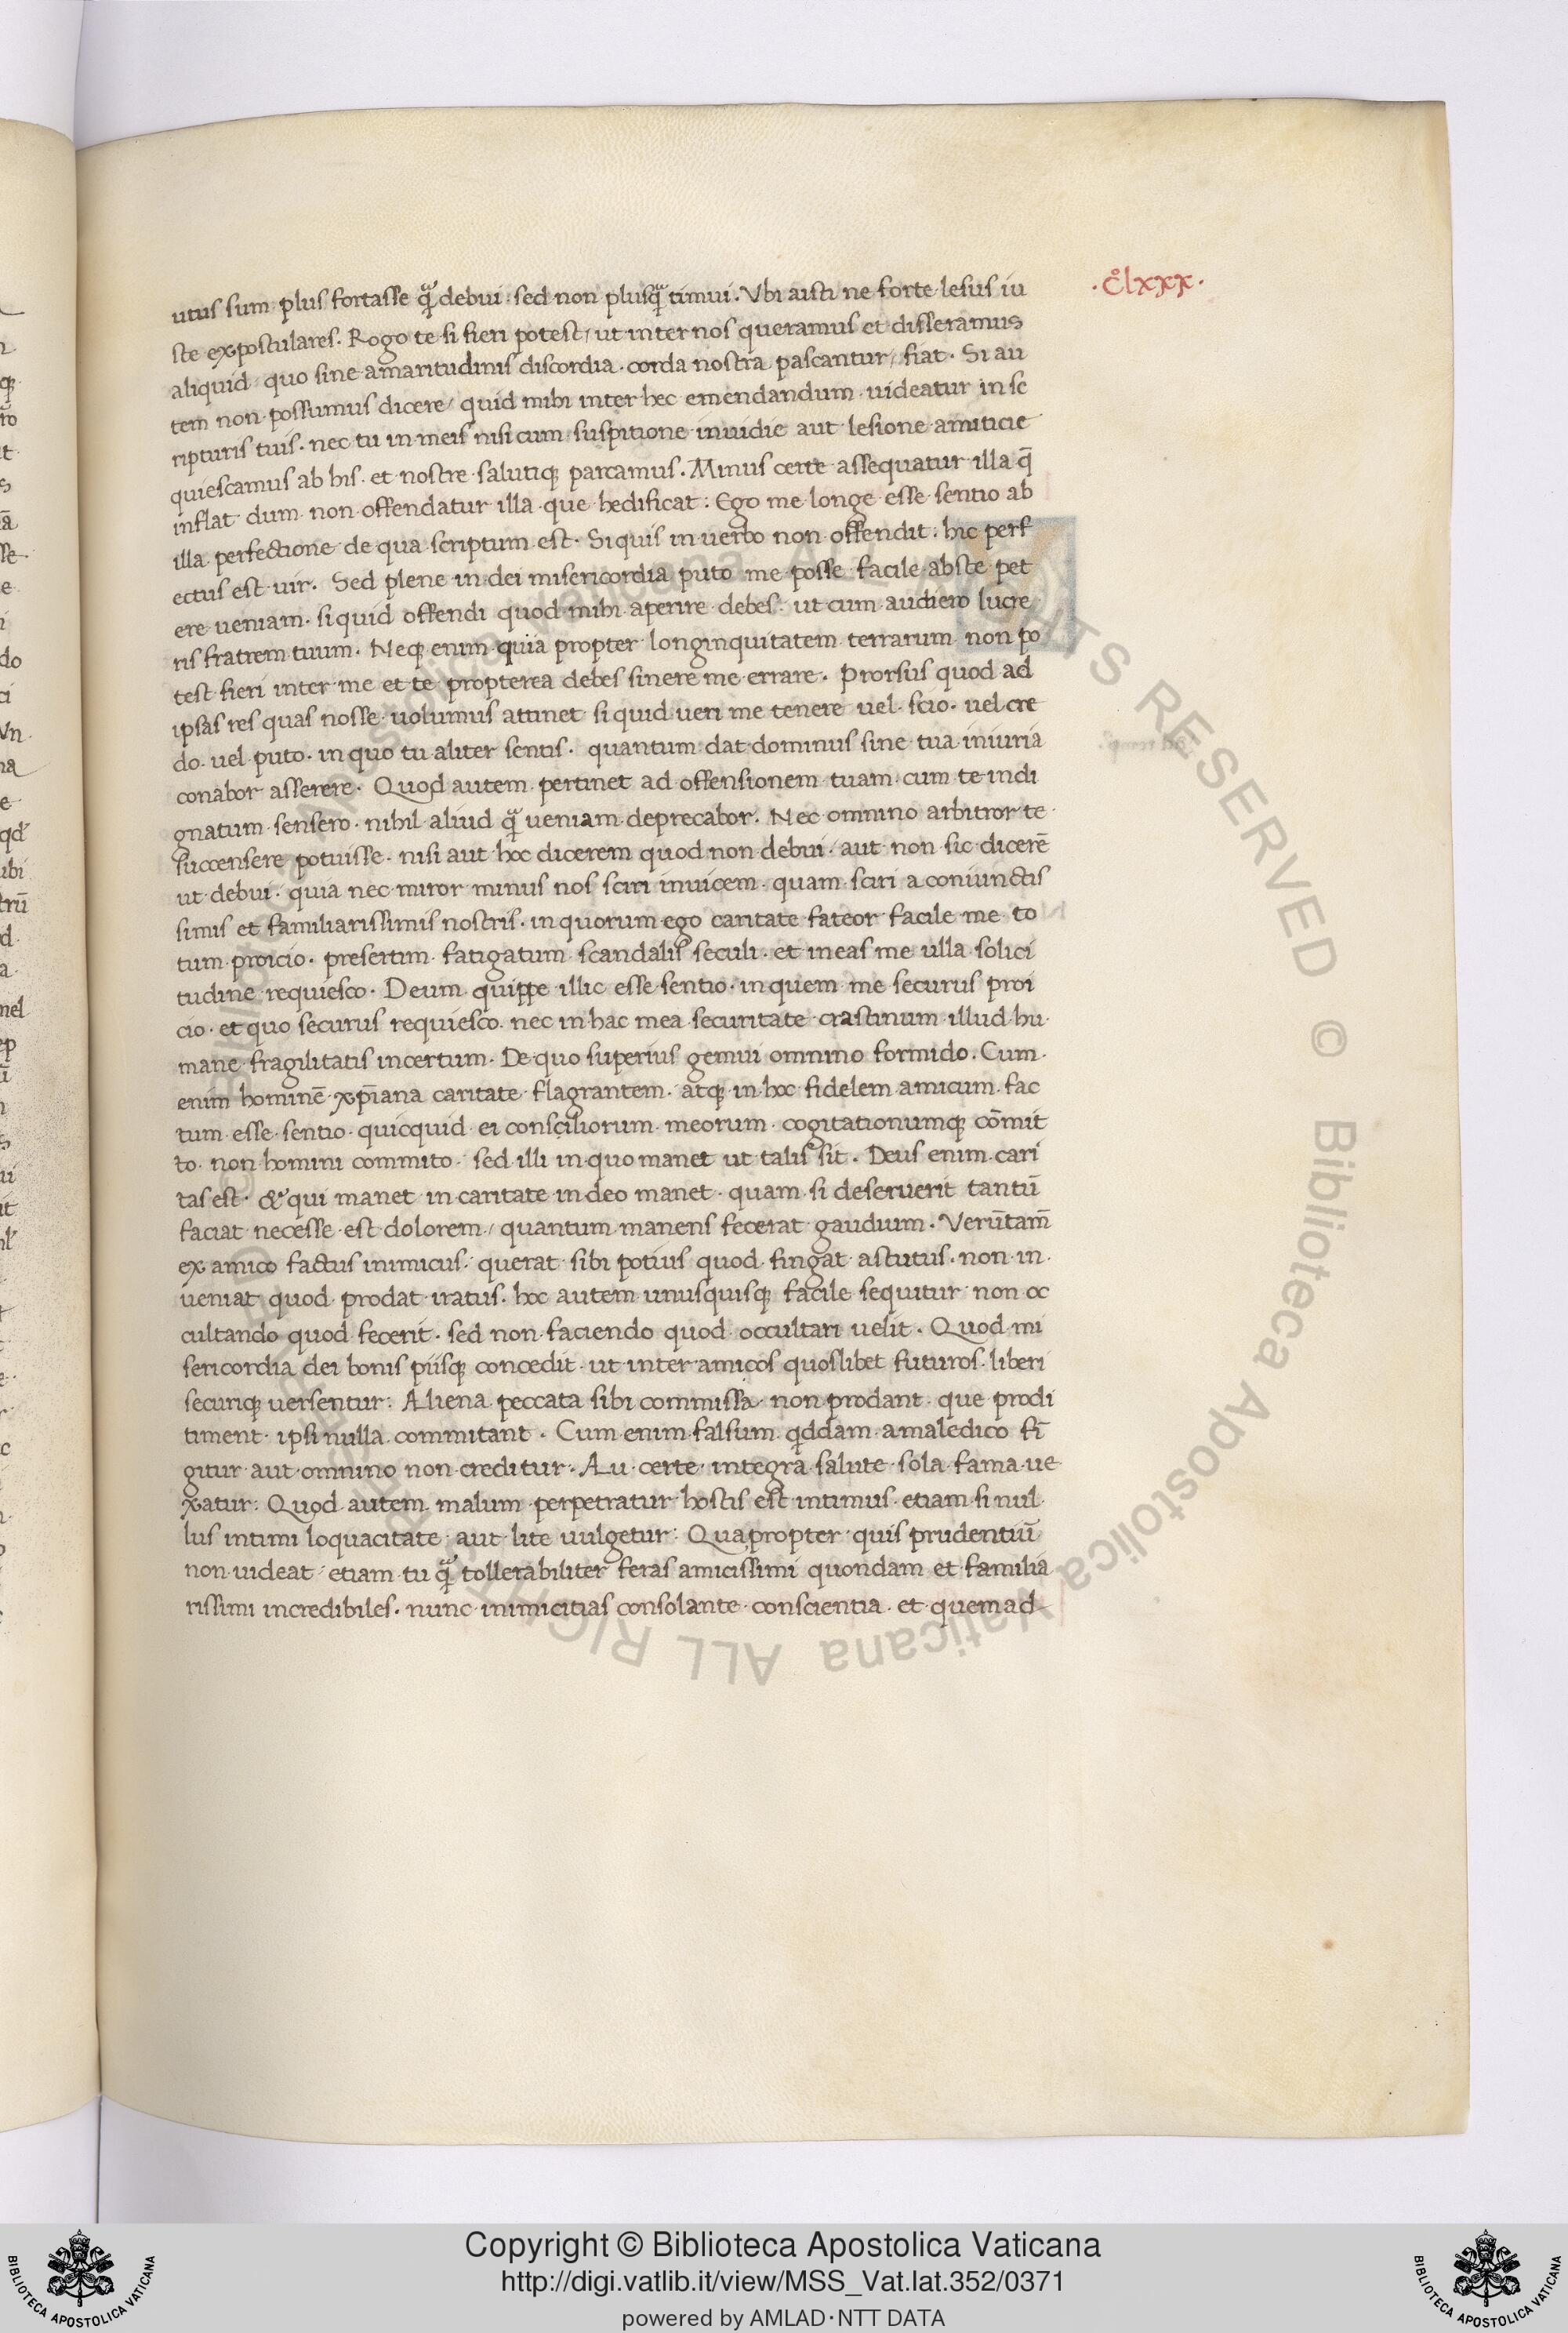 ·cͦlxxx·
utus sum plus fortasse qͣ̃ debui · sed non plusqͣ̃ timui · Vbi aisti ne forte lesus iu
ste expostulares · Rogo te si fieri potest / ut inter nos queramus et disseramus
aliquid quo sine amaritudinis discordia corda nostra pascantur / fiat · Si au
tem non possumus dicere / quid mihi inter hec emendandum uideatur in sc
ripturis tuis · nec tu in meis nisi cum suspitione inuidie aut lesione amiticie
quiescamus ab his · et nostre salutiqꝫ parcamus · Minus certe assequatur illa q̃
inflat dum non offendatur illa que hedificat : Ego me longe esse sentio ab
illa perfectione de qua scriptum est · Si quis in uerbo non offendit · hic perf
ectus est uir · Sed plene in dei misericordia puto me posse facile abste pet
ere ueniam · si quid offendi quod mihi aperire debes · ut cum audiero lucre
ris fratrem tuum · Neqꝫ enim quia propter longinquitatem terrarum non po
test fieri inter me et te propterea debes sinere me errare · Prorsus quod ad
ipsas res quas nosse uolumus attinet si quid ueri me tenere uel scio · uel cre
do · uel puto · in quo tu aliter sentis · quantum dat dominus sine tua iniuria
conabor asserere · Quod autem pertinet ad offensionem tuam cum te indi
gnatum sensero · nihil aliud qͣ̃ ueniam deprecabor · Nec omnino arbitror te
succensere potuisse · nisi aut hoc dicerem quod non debui · aut non sic dicerē
ut debui · quia nec miror minus nos sciri inuicem quam sciri a coniunctis
simis et familiarissimis nostris · in quorum ego caritate fateor facile me to
tum proicio · presertim fatigatum scandalis seculi · et in eas me ulla solici
tudine requiesco · Deum quippe illic esse sentio · in quem me securus proi
cio · et quo securus requiesco · nec in hac mea securitate crastinum illud hu
mane fragilitatis incertum · De quo superius gemui omnino formido · Cum
enim hominē xp̄iana caritate flagrantem · atqꝫ in hoc fidelem amicum fac
tum esse sentio · quicquid ei consciliorum meorum cogitationumqꝫ cōmit
to · non homini commito · sed illi in quo manet ut talis sit · Deus enim cari
tas est · & qui manet in caritate in deo manet · quam si deseruerit tantū
faciat necesse est dolorem / quantum manens fecerat gaudium · Verūtam̄
ex amico factus inimicus · querat sibi potius quod fingat astutus · non in
ueniat quod prodat iratus · hoc autem unusquisqꝫ facile sequitur non oc
cultando quod fecerit · sed non faciendo quod occultari uelit · Quod mi
sericordia dei bonis piisqꝫ concedit · ut inter amicos quoslibet futuros liberi
securiqꝫ uersentur : Aliena peccata sibi commissa non prodant que prodi
timent · ipsi nulla commitant · Cum enim falsum qͥddam a maledico fī
gitur aut omnino non creditur · Au certe integra salute sola fama ue
xatur : Quod autem malum perpetratur hostis est intimus · etiam si nul
lus intimi loquacitate aut lite uulgetur : Quapropter quis prudentiū
non uideat etiam tu qͣ̃ tollerabiliter feras amicissimi quondam et familia
rissimi incredibiles · nunc inimicitias consolante conscientia · et quemad
Copyright © Biblioteca Apostolica Vaticana
http://digi.vatlib.it/view/MSS_Vat.lat.352/0371
powered by AMLAD·NTT DATA
BIBLIOTECA APOSTOLICA VATICANA
BIBLIOTECA APOSTOLICA VATICANA
© Biblioteca Apostolica Vaticana ALL RIGHTS RESERVED